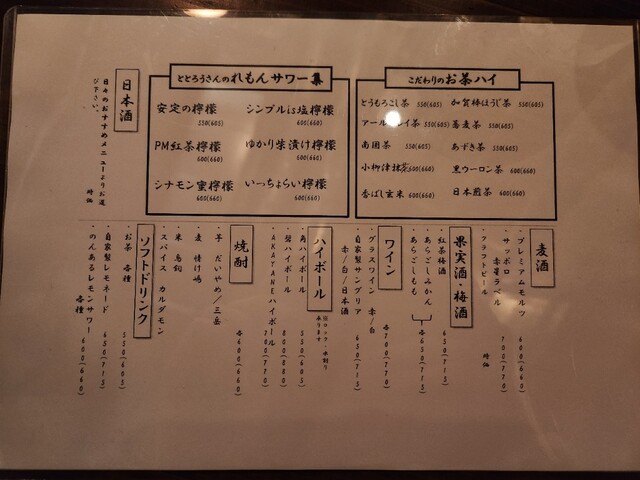 こだわりのお茶ハイ
とうもろこし茶 550(605)
加賀棒ほうじ茶 550(605)
アールグレイ茶 550(605)
蕎麦茶 550(605)
550(605)
あずき茶 550(605)
小柳津抹茶 600(660)
黒ウーロン茶 600(660)
香ばし玄米 600(660)
日本煎茶 600(660)
ととろうさんのれもんサワー集
安定の檸檬
550(605)
シンプルis塩檸檬
600(660)
PM紅茶檸檬
600(660)
ゆかり柴漬け檸檬
600(660)
シナモン蜜檸檬
600(660)
いっちょらい檸檬
600(660)
日本酒
日々のおすすめメニューよりお選
び下さい。 時価
麦酒
・プレミアムモルツ 600(660)
・サッポロ
赤星ラベル 700(770)
・クラフトビール 時価
果実酒・梅酒
・紅茶梅酒 650(715)
・あらごしみかん
・あらごしもも 各650(715)
ワイン
・グラスワイン 赤/白 各700(770)
・自家製サングリア
赤/白/日本酒 650(715)
ハイボール
※ロック・水割り
承ります
・角ハイボール 550(605)
・響ハイボール 800(880)
・AKATANEハイボール 700(770)
焼酎
・芋 だいやめ/三岳
・麦
・米 鳥飼
・スパイス カルダモン
各600(660)
ソフトドリンク
・お茶 各種 550(605)
・自家製レモネード 650(715)
・のんあるレモンサワー
各種 600(660)